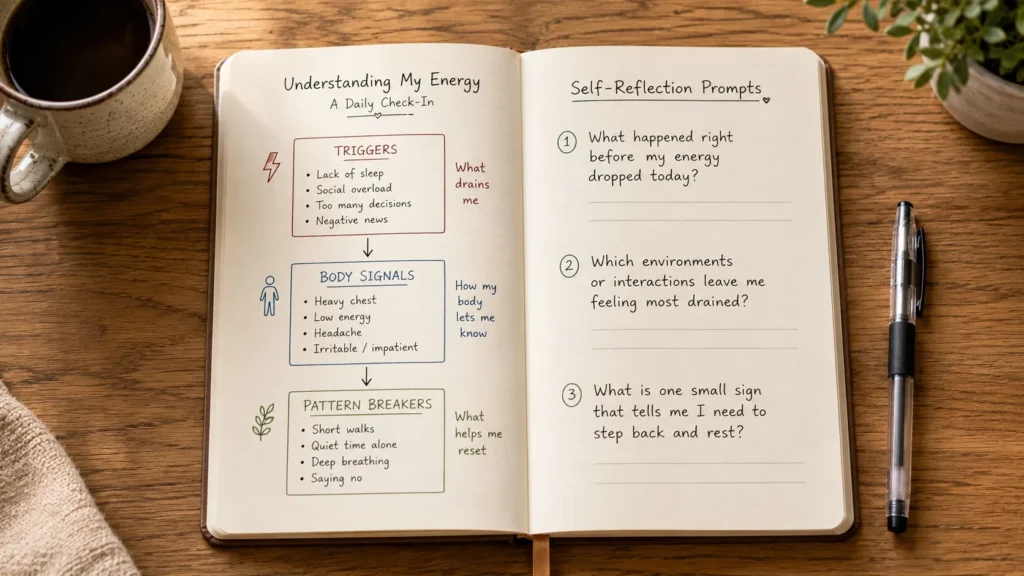 Understanding My Energy
A Daily Check-In
TRIGGERS
• Lack of sleep
• Social overload
• Too many decisions
• Negative news
What
drains
me
BODY SIGNALS
• Heavy chest
• Low energy
• Headache
• Irritable / impatient
How my
body
lets me
know
PATTERN BREAKERS
• Short walks
• Quiet time alone
• Deep breathing
• Saying no
What
helps me
reset
Self-Reflection Prompts
1 What happened right
before my energy
dropped today?
2 Which environments
or interactions leave me
feeling most drained?
3 What is one small sign
that tells me I need to
step back and rest?